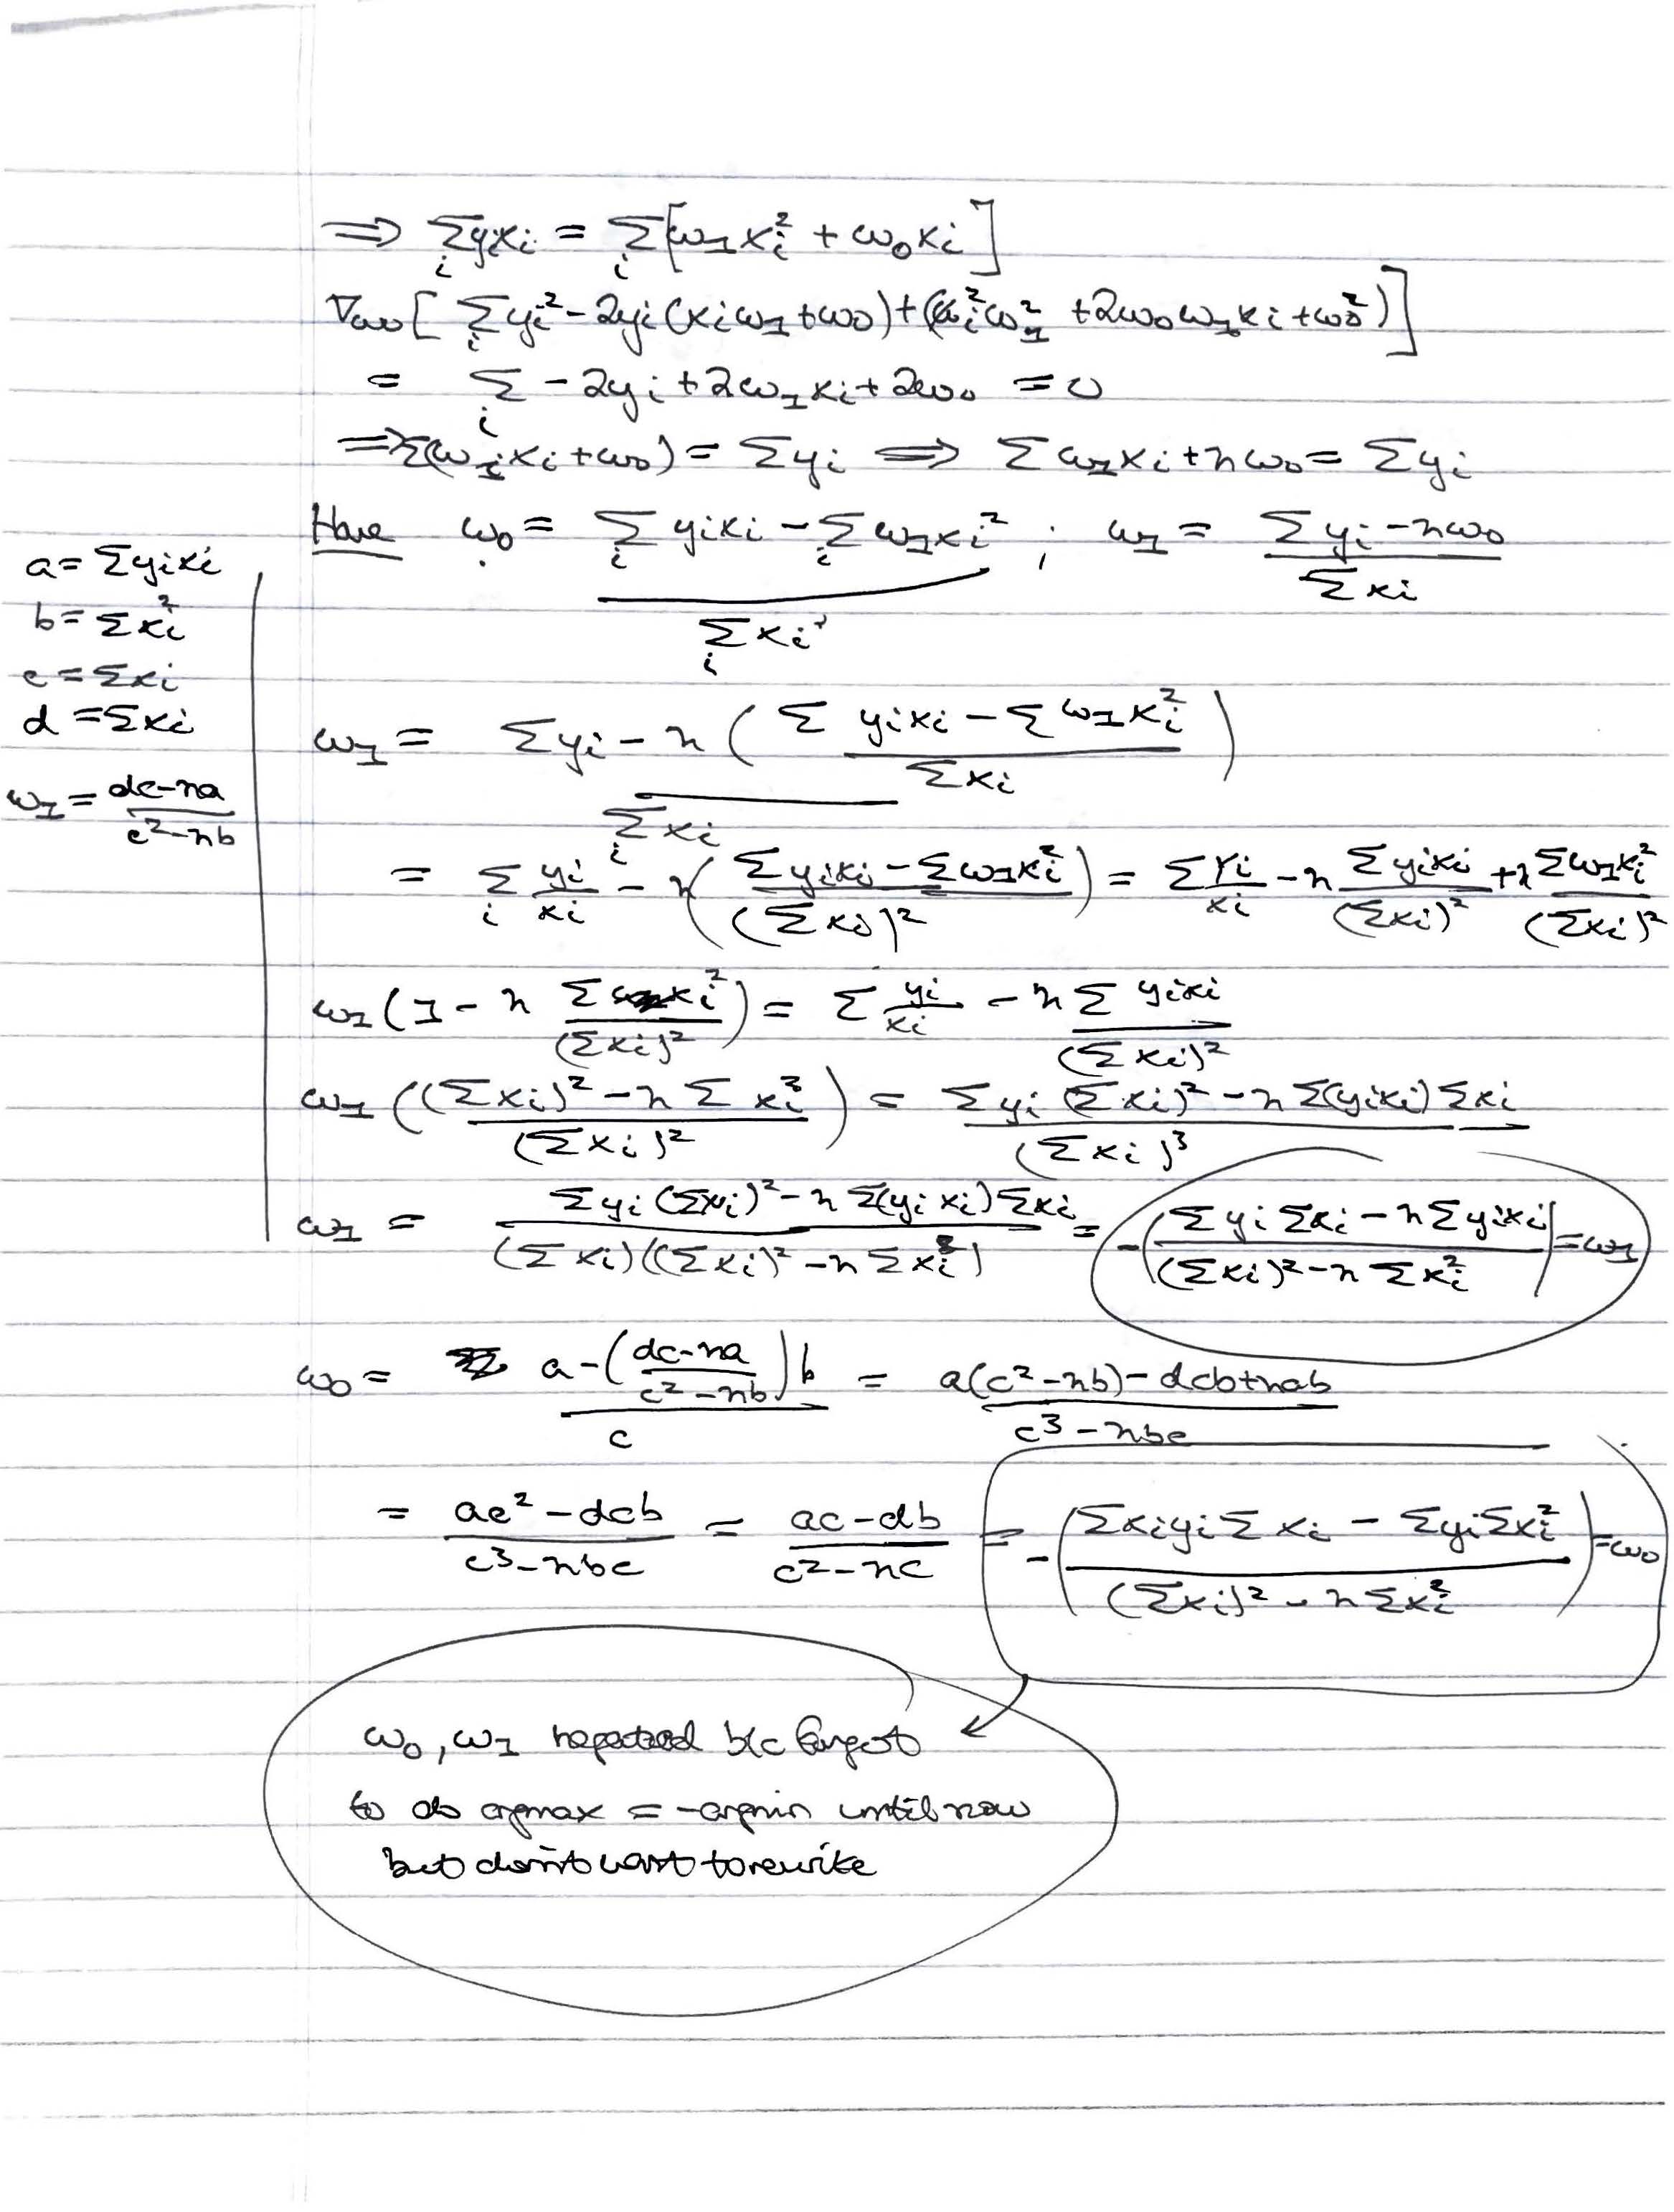 ⟹ Σ_i y_i x_i = Σ_i [ω_1 x_i^2 + ω_0 x_i]
∇_ω0 [ Σ_i y_i^2 - 2y_i (x_i ω_1 + ω_0) + (x_i^2 ω_1^2 + 2ω_0 ω_1 x_i + ω_0^2) ]
= Σ_i - 2y_i + 2ω_1 x_i + 2ω_0 = 0
⟹ Σ(ω_1 x_i + ω_0) = Σ y_i ⟹ Σ ω_1 x_i + n ω_0 = Σ y_i
Have ω_0 = (Σ_i y_i x_i - Σ_i ω_1 x_i^2) / Σ_i x_i ; ω_1 = (Σ y_i - n ω_0) / Σ x_i
a = Σ y_i x_i
b = Σ x_i^2
c = Σ x_i
d = Σ x_i
ω_1 = (dc - na) / (c^2 - nb)
ω_1 = (Σ y_i - n ( (Σ y_i x_i - Σ ω_1 x_i^2) / Σ x_i )) / Σ_i x_i
= Σ_i y_i/x_i - n( (Σ y_i x_i - Σ ω_1 x_i^2) / (Σ x_i)^2 ) = Σ y_i/x_i - n Σ y_i x_i / (Σ x_i)^2 + n Σ ω_1 x_i^2 / (Σ x_i)^2
ω_1 (1 - n Σ x_i^2 / (Σ x_i)^2) = Σ y_i/x_i - n Σ y_i x_i / (Σ x_i)^2
ω_1 ( ((Σ x_i)^2 - n Σ x_i^2) / (Σ x_i)^2 ) = (Σ y_i (Σ x_i)^2 - n Σ(y_i x_i) Σ x_i) / (Σ x_i)^3
ω_1 = (Σ y_i (Σ x_i)^2 - n Σ(y_i x_i) Σ x_i) / ((Σ x_i)((Σ x_i)^2 - n Σ x_i^2)) = -( (Σ y_i Σ x_i - n Σ y_i x_i) / ((Σ x_i)^2 - n Σ x_i^2) ) = ω_1
ω_0 = (a - ((dc - na) / (c^2 - nb)) b) / c = (a(c^2 - nb) - dcb + nab) / (c^3 - nbc)
= (ac^2 - dcb) / (c^3 - nbc) = (ac - db) / (c^2 - nc) = -( (Σ x_i y_i Σ x_i - Σ y_i Σ x_i^2) / ((Σ x_i)^2 - n Σ x_i^2) ) = ω_0
ω_0, ω_1 negated b/c forgot
to do argmax = -argmin until now
but don't want to rewrite